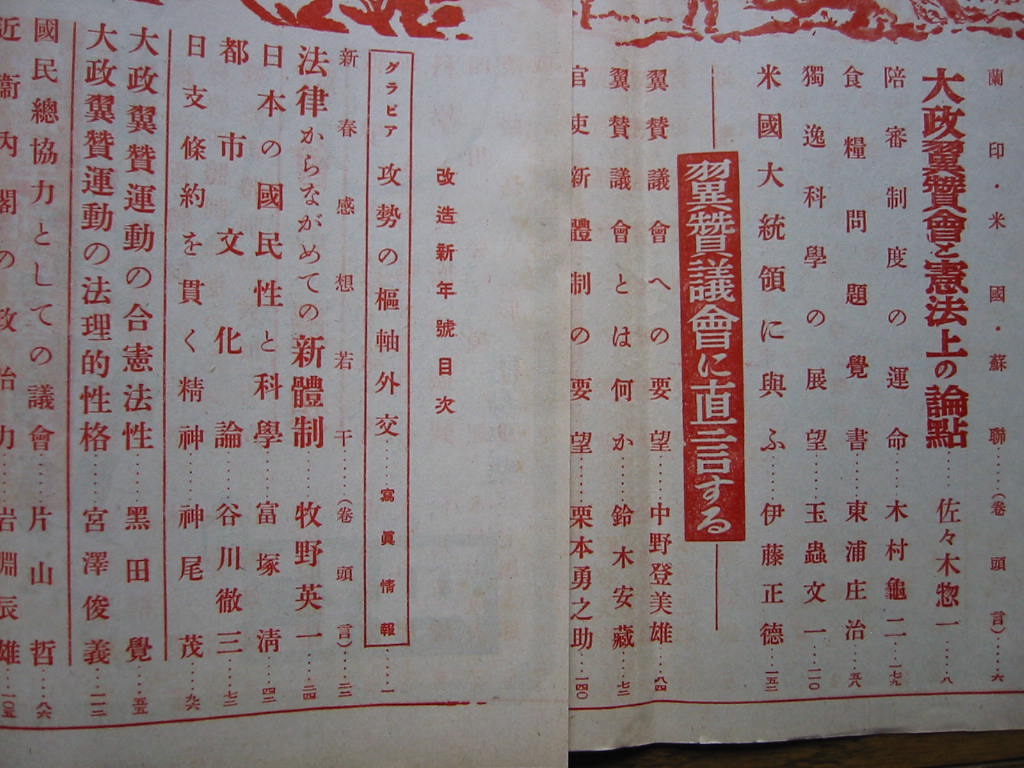 蘭印・米國・蘇聯……(卷頭言)……六
大政翼贊會と憲法上の論點……佐々木惣一……八
陪審制度の運命……木村龜二……一七九
食糧問題覺書……東浦庄治……五八
獨逸科學の展望……玉蟲文一……二一〇
米國大統領に與ふ……伊藤正德……一五二
翼贊議會に直言する
翼贊議會への要望……中野登美雄……八四
翼贊議會とは何か……鈴木安藏……七三
官吏新體制の要望……栗本勇之助……一四〇
改造新年號目次
グラビア 攻勢の樞軸外交……寫眞情報……一
新春感想若干……(卷頭言)……二三
法律からながめての新體制……牧野英一……二四
日本の國民性と科學……富塚淸……四二
都市文化論……谷川徹三……七二
日支條約を貫く精神……神尾茂……九六
大政翼贊運動の合憲法性……黑田覺
大政翼贊運動の法理的性格……宮澤俊義……一一二
國民總協力としての議會……片山哲……八六
近衞內閣の政治力……岩淵辰雄……一〇五